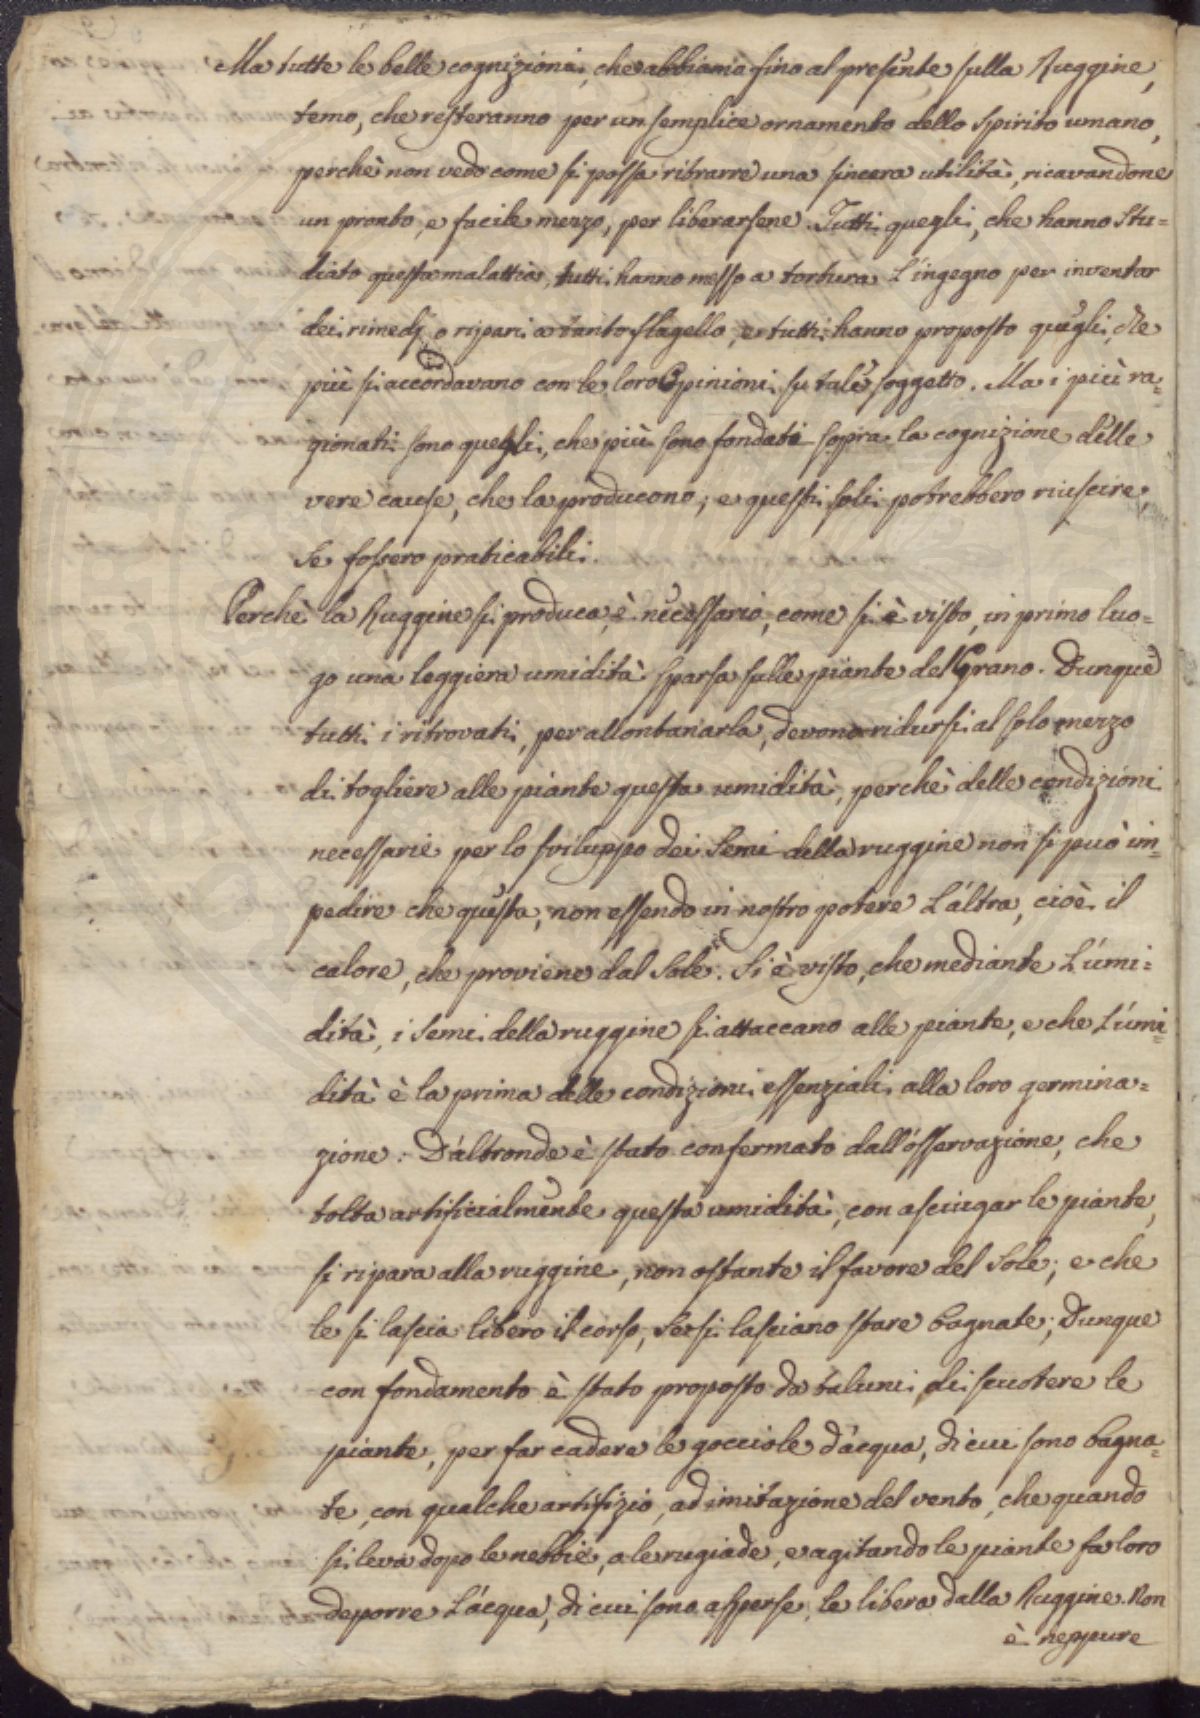 Ma tutte le belle cognizioni, che abbiamo fino al presente sulla Ruggine,
temo, che resteranno per un semplice ornamento dello Spirito umano,
perchè non vedo come si possa ritrarre una sincera utilità, ricavandone
un pronto, e facile mezzo, per liberarsene. Tutti quegli, che hanno Stu=
diato questa malattia, tutti hanno messo a tortura L'ingegno per inventar
dei rimedj o ripari a tanto flagello, e tutti hanno proposto quegli, che
più si accordavano con le loro Opinioni su tale soggetto. Ma i più ra=
gionati sono quegli, che più sono fondati sopra la cognizione delle
vere cause, che la producono; e questi soli potrebbero riuscire,
se fossero praticabili.
Perchè la Ruggine si produca, è necessario, come si è visto, in primo luo=
go una leggiera umidità sparsa sulle piante del Grano. Dunque
tutti i ritrovati, per allontanarla, devono ridursi al solo mezzo
di togliere alle piante questa umidità, perchè delle condizioni
necessarie per lo sviluppo dei Semi della ruggine non si può im=
pedire che questa, non essendo in nostro potere L'altra, cioè il
calore, che proviene dal Sole. Si è visto, che mediante L'umi=
dità, i Semi della ruggine si attaccano alle piante, e che L'umi=
dità è la prima delle condizioni essenziali alla loro germina=
zione. D'altronde è stato confermato dall'osservazione, che
tolta artificialmente questa umidità, con asciugar le piante,
si ripara alla ruggine, non ostante il favore del Sole; e che
le si lascia libero il corso, se si lasciano stare bagnate; Dunque
con fondamento è stato proposto da taluni di scuotere le
piante, per far cadere le gocciole d'acqua, di cui sono bagna=
te, con qualche artifizio, ad imitazione del vento, che quando
si leva dopo le nebbie, o le rugiade, e agitando le piante fa loro
deporre L'acqua, di cui sono asperse, le libera dalla Ruggine. Non
è neppure